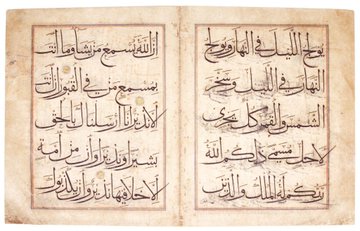 يولج الليل في النهار ويولج
النهار في الليل وسخر
الشمس والقمر كل يجري
لاجل مسمى ذلكم الله
ربكم له الملك والذين
ان الله يسمع من يشاء وما انت
بمسمع من في القبور ان انت
الا نذير انا ارسلناك بالحق
بشيرا ونذيرا وان من امة
الا خلا فيها نذير وان يكذبوك